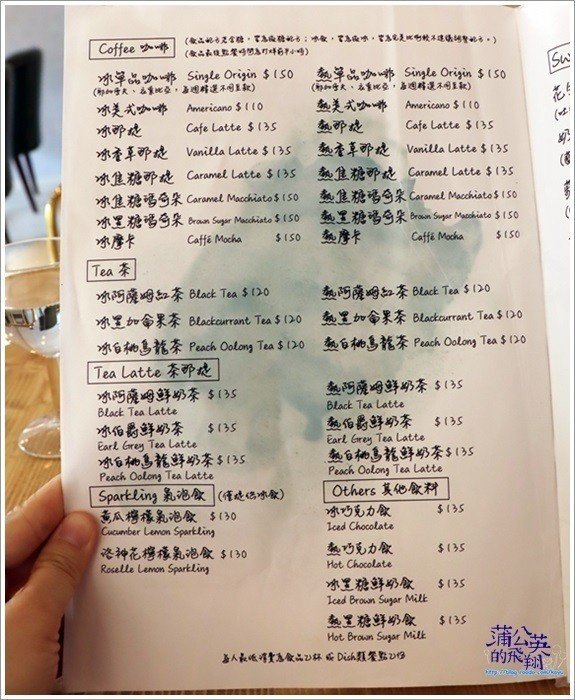 Coffee 咖啡
冰單品咖啡 Single Origin $150
冰美式咖啡 Americano $110
冰那堤 Cafe Latte $135
冰香草那堤 Vanilla Latte $135
冰焦糖那堤 Caramel Latte $135
冰焦糖瑪奇朵 Caramel Macchiato $150
冰黑糖瑪奇朵 Brown Sugar Macchiato $150
冰摩卡 Caffé Mocha $150
熱單品咖啡 Single Origin $150
熱美式咖啡 Americano $110
熱那堤 Cafe Latte $135
熱香草那堤 Vanilla Latte $135
熱焦糖那堤 Caramel Latte $135
熱焦糖瑪奇朵 Caramel Macchiato $150
熱黑糖瑪奇朵 Brown Sugar Macchiato $150
熱摩卡 Caffé Mocha $150
Tea 茶
冰阿薩姆紅茶 Black Tea $120
冰黑加侖果茶 Blackcurrant Tea $120
冰白桃烏龍茶 Peach Oolong Tea $120
熱阿薩姆紅茶 Black Tea $120
熱黑加侖果茶 Blackcurrant Tea $120
熱白桃烏龍茶 Peach Oolong Tea $120
Tea Latte 茶那堤
冰阿薩姆鮮奶茶 $135
Black Tea Latte
冰伯爵鮮奶茶 $135
Earl Grey Tea Latte
冰白桃烏龍鮮奶茶 $135
Peach Oolong Tea Latte
熱阿薩姆鮮奶茶 $135
Black Tea Latte
熱伯爵鮮奶茶 $135
Earl Grey Tea Latte
熱白桃烏龍鮮奶茶 $135
Peach Oolong Tea Latte
Sparkling 氣泡飲 (僅提供冰飲)
黃瓜檸檬氣泡飲 $130
Cucumber Lemon Sparkling
洛神花檸檬氣泡飲 $130
Roselle Lemon Sparkling
Others 其他飲料
冰巧克力飲 $135
Iced Chocolate
熱巧克力飲 $135
Hot Chocolate
冰黑糖鮮奶飲 $135
Iced Brown Sugar Milk
熱黑糖鮮奶飲 $135
Hot Brown Sugar Milk
每人最低消費為飲品乙杯 或 Dish類餐點乙份
蒲公英
的飛翔